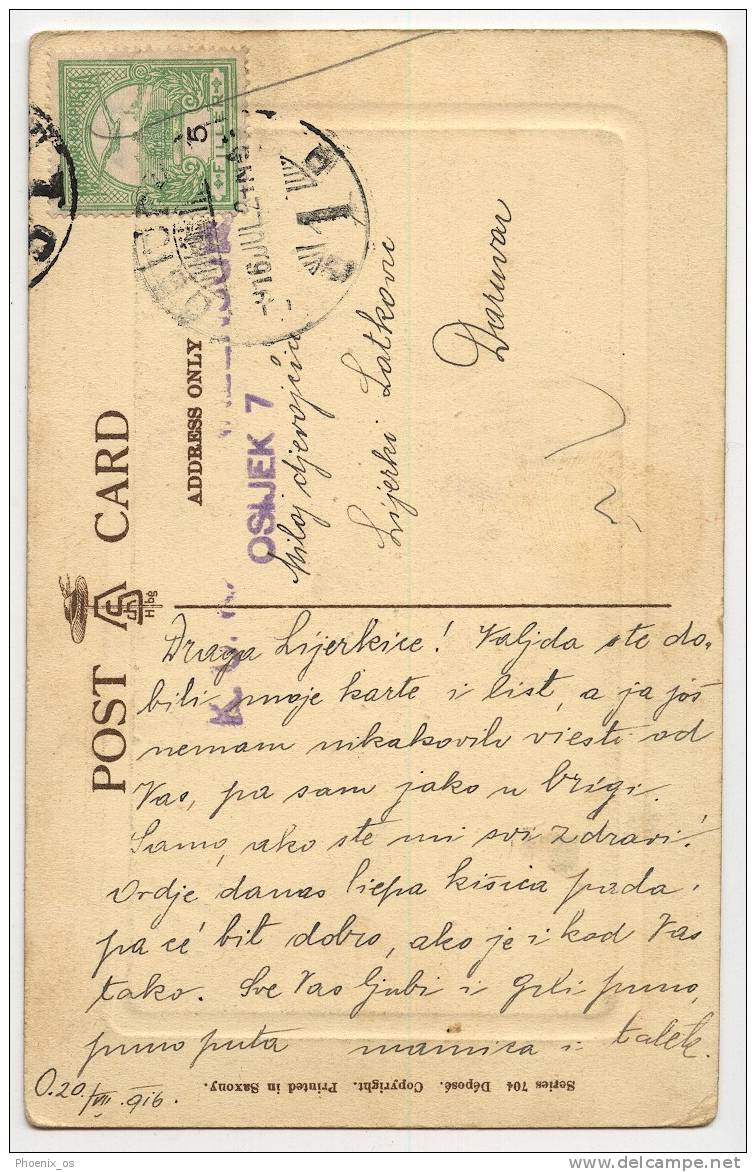 POST CARD
ADDRESS ONLY
5
FILLER
916 JUL 21 N
1
OSIJEK 7
Miloj djevojčici
Lijerki Latković
Daruvar
Draga Lijerkice! Valjda ste do-
bili moje karte i list, a ja još
nemam nikakovih viesti od
Vas, pa sam jako u brigi.
Samo, ako ste mi svi zdravi!
Ovdje danas liepa kišica pada,
pa će bit dobro, ako je i kod Vas
tako. Sve Vas ljubi i grli puno,
puno puta mamica i tatek.
O. 20./VII. 916.
Series 704 Déposé. Copyright. Printed in Saxony.
Phoenix_os